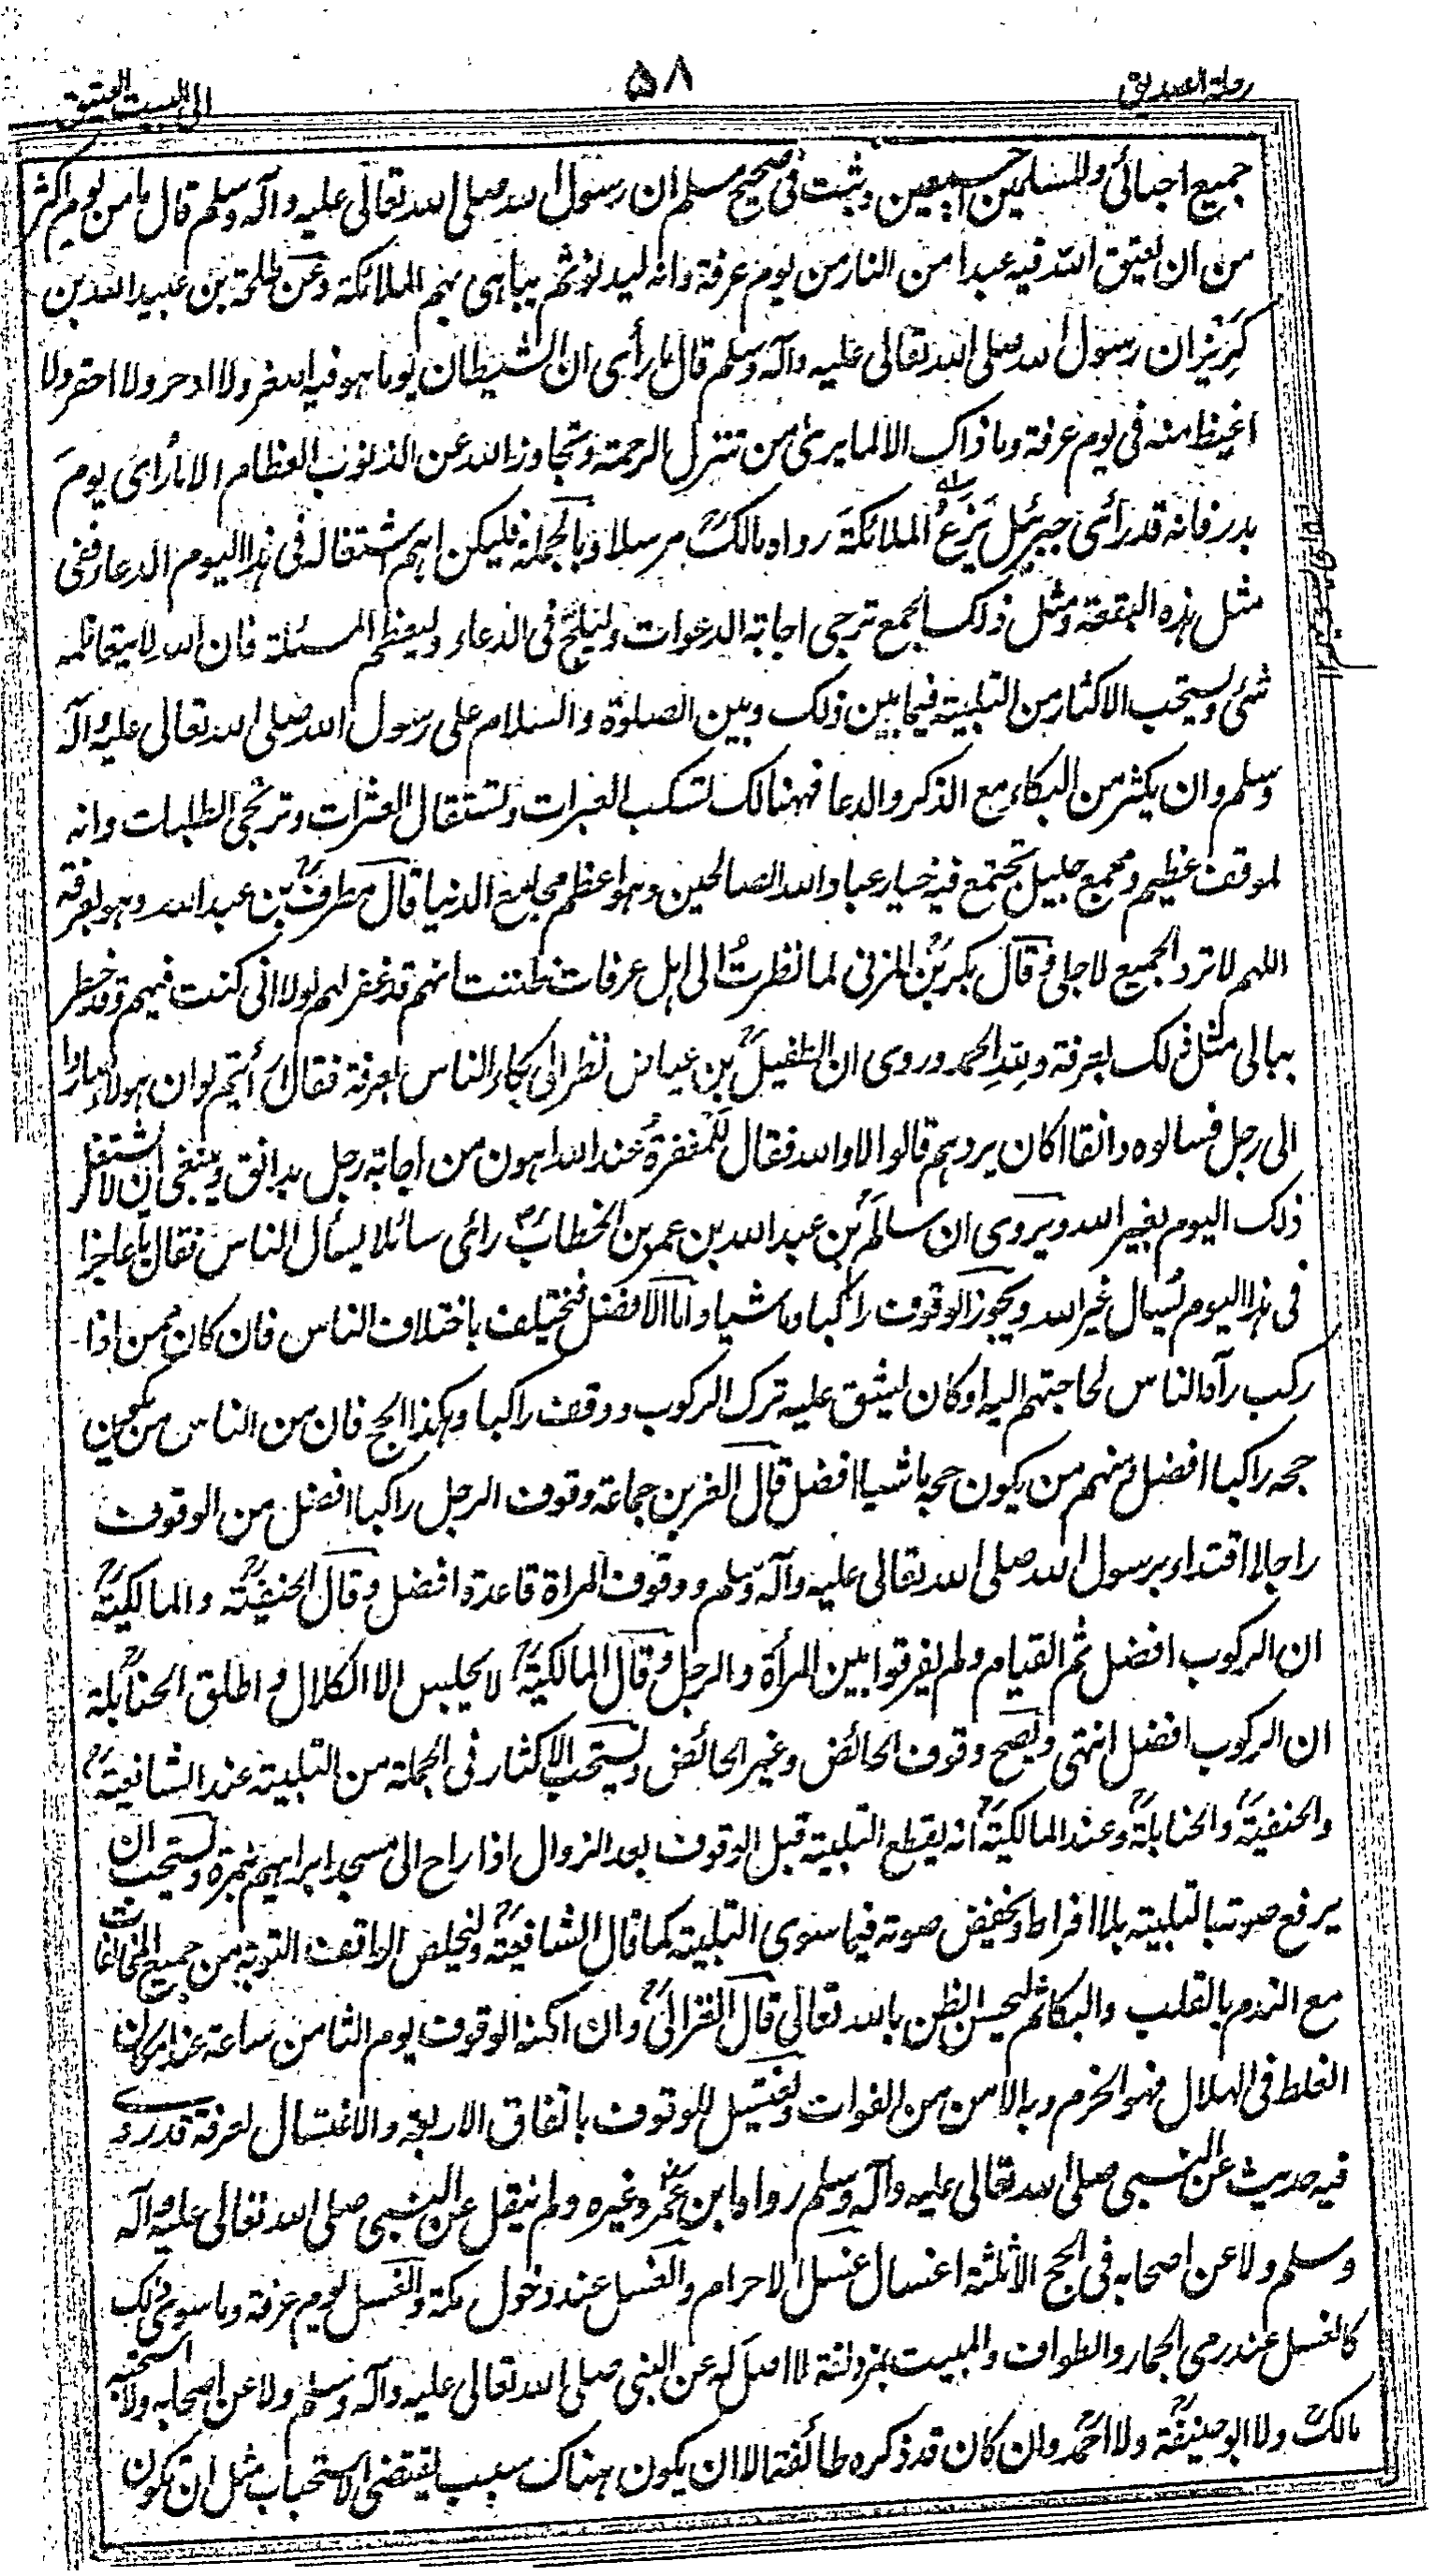 رحلة الصديق
۵۸
الى البيت العتيق
جميع احبائى وللمسلمين اجمعين وثبت فى صحيح مسلم ان رسول الله صلى الله تعالى عليه وآله وسلم قال ما من يوم اكثر
من ان يعتق الله فيه عبدا من النار من يوم عرفة وانه ليدنو ثم يباهى بهم الملائكة وعن طلحة بن عبيد الله بن
كَرِيز ان رسول الله صلى الله تعالى عليه وآله وسلم قال ما رأى ان الشيطان يوما هو فيه اصغر ولا ادحر ولا احقر ولا
اغيظ منه فى يوم عرفة وما ذاك الا لما يرى من تنزل الرحمة وتجاوز الله عن الذنوب العظام الا ما رأى يوم
بدر فانه قد رأى جبرئيل يَزَعُ الملائكة رواه مالك مرسلا وبالجملة فليكن اهم اشتغاله فى هذا اليوم الدعا ففى
مثل هذه البقعة ومثل ذلك الجمع ترجى اجابة الدعوات وليلح فى الدعاء وليعظم المسئلة فان الله لا يتعاظمه
شئ ويستحب الاكثار من التلبية فيما بين ذلك وبين الصلوة والسلام على رسول الله صلى الله تعالى عليه وآله
وسلم وان يكثر من البكاء مع الذكر والدعا فهنالك تسكب العبرات وتستقال العثرات وترتجى الطلبات وانه
لموقف عظيم ومجمع جليل تجتمع فيه خيار عباد الله الصالحين وهو اعظم مجامع الدنيا قال مطرف بن عبد الله وهو بعرفة
اللهم لا ترد الجميع لاجلى وقال بكر بن المزنى لما نظرت الى اهل عرفات ظننت انهم قد غفر لهم لولا انى كنت فيهم وقد خطر
ببالى مثل ذلك بعرفة ولله الحمد وروى ان الفضيل بن عياض نظر الى بكاء الناس بعرفة فقال أرأيتم لو ان هولاء صاروا
الى رجل فسالوه دانقا اكان يردهم قالوا لا والله فقال لَلمغفرةُ عند الله اهون من اجابة رجل بدانق وينبغى ان لا يشتغل
ذلك اليوم بغير الله ويروى ان سالم بن عبد الله بن عمر بن الخطاب رأى سائلا يسأل الناس فقال يا عاجزا
فى هذا اليوم يُسال غير الله ويجوز الوقوف راكبا وماشيا واما الافضل فيختلف باختلاف الناس فان كان ممن اذا
ركب رآه الناس لحاجتهم اليه او كان يشق عليه ترك الركوب ووقف راكبا وهكذا الحج فان من الناس من يكون
حجه راكبا افضل ومنهم من يكون حجه ماشيا افضل قال العز بن جماعة وقوف الرجل راكبا افضل من الوقوف
راجلا اقتداء برسول الله صلى الله تعالى عليه وآله وسلم ووقوف المراة قاعدة افضل وقال الحنفية والمالكية
ان الركوب افضل ثم القيام ولم يفرقوا بين المرأة والرجل وقال المالكية لا يجلس الا لكلال واطلق الحنابلة
ان الركوب افضل انتهى ويصح وقوف الحائض وغير الحائض ويستحب الاكثار فى الجملة من التلبية عند الشافعية
والحنفية والحنابلة وعند المالكية انه يقطع التلبية قبل الوقوف بعد الزوال اذا راح الى مسجد ابراهيم بنمرة ويستحب ان
يرفع صوته بالتلبية بلا افراط ويخفض صوته فيما سوى التلبية كما قال الشافعية وليخلص الواقف التوبة من جميع المخالفات
مع الندم بالقلب والبكا ثم ليحسن الظن بالله تعالى قال الغزالى وان امكنه الوقوف يوم الثامن ساعة عند امكان
الغلط فى الهلال فهو الحزم وبه الامن من الفوات ويغتسل للوقوف باتفاق الاربعة والاغتسال لعرفة قد روى
فيه حديث عن النبى صلى الله تعالى عليه وآله وسلم رواه ابن عمر وغيره ولم ينقل عن النبى صلى الله تعالى عليه وآله
وسلم ولا عن اصحابه فى الحج الا ثلثة اغسال غسل الاحرام والغسل عند دخول مكة والغسل يوم عرفة وما سوى ذلك
كالغسل عند رمى الجمار والطواف والمبيت بمزدلفة لا اصل له عن النبى صلى الله تعالى عليه وآله وسلم ولا عن اصحابه ولا استحبه
مالك ولا ابو حنيفة ولا احمد وان كان قد ذكره طائفة الا ان يكون هناك سبب يقتضى الاستحباب مثل ان تكون